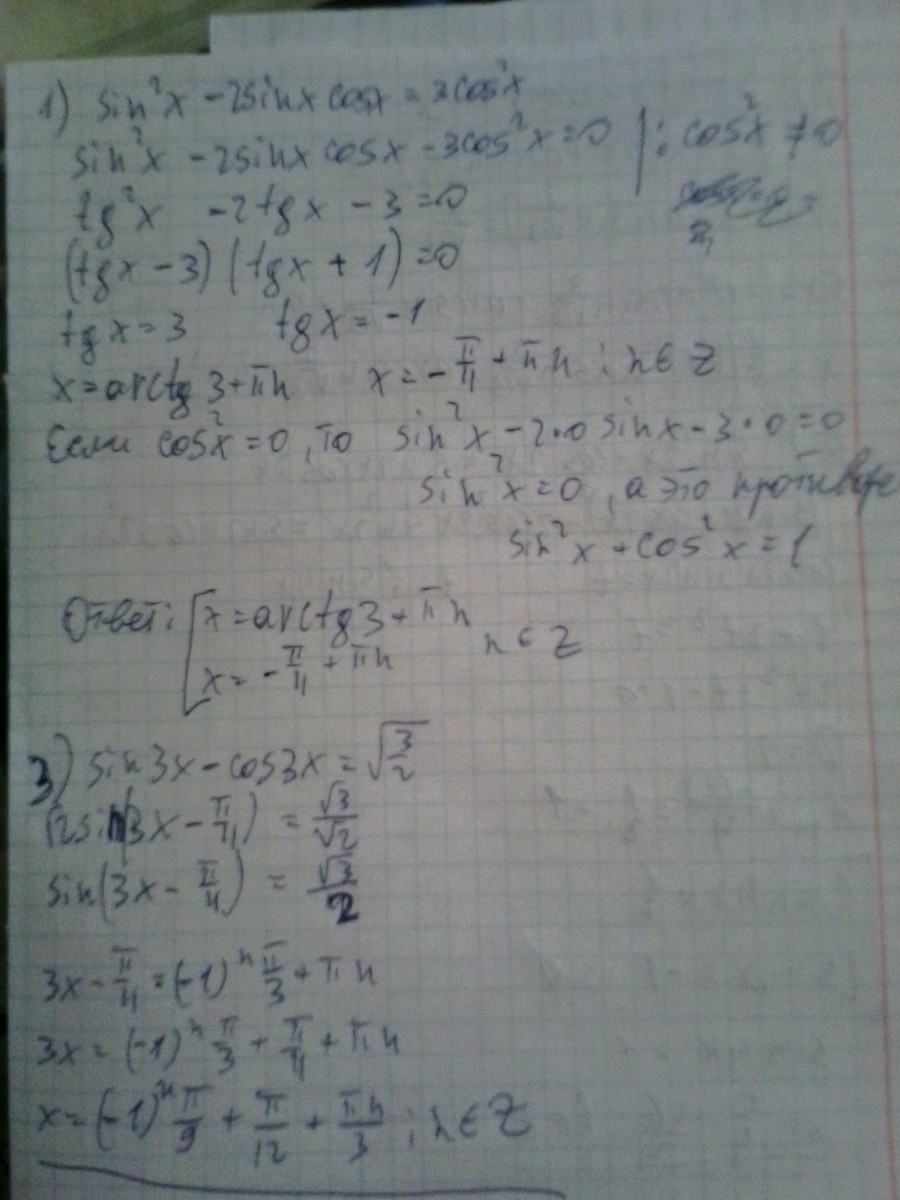 1) sin²x - 2sinx cosx = 3cos²x
sin²x - 2sinx cosx - 3cos²x = 0 | : cos²x ≠ 0
tg²x - 2tgx - 3 = 0
(tgx - 3)(tgx + 1) = 0
tgx = 3 tgx = -1
x = arctg3 + πn x = -π/4 + πn ; n ∈ Z
Если cos²x = 0, то sin²x - 2·0 sinx - 3·0 = 0
sin²x = 0, а это противоре
sin²x + cos²x = 1
Ответ: [ x = arctg3 + πn
x = -π/4 + πn n ∈ Z
3) sin3x - cos3x = √(3/2)
√2 sin(3x - π/4) = √3/√2
sin(3x - π/4) = √3/2
3x - π/4 = (-1)ⁿ π/3 + πn
3x = (-1)ⁿ π/3 + π/4 + πn
x = (-1)ⁿ π/9 + π/12 + πn/3 ; n ∈ Z